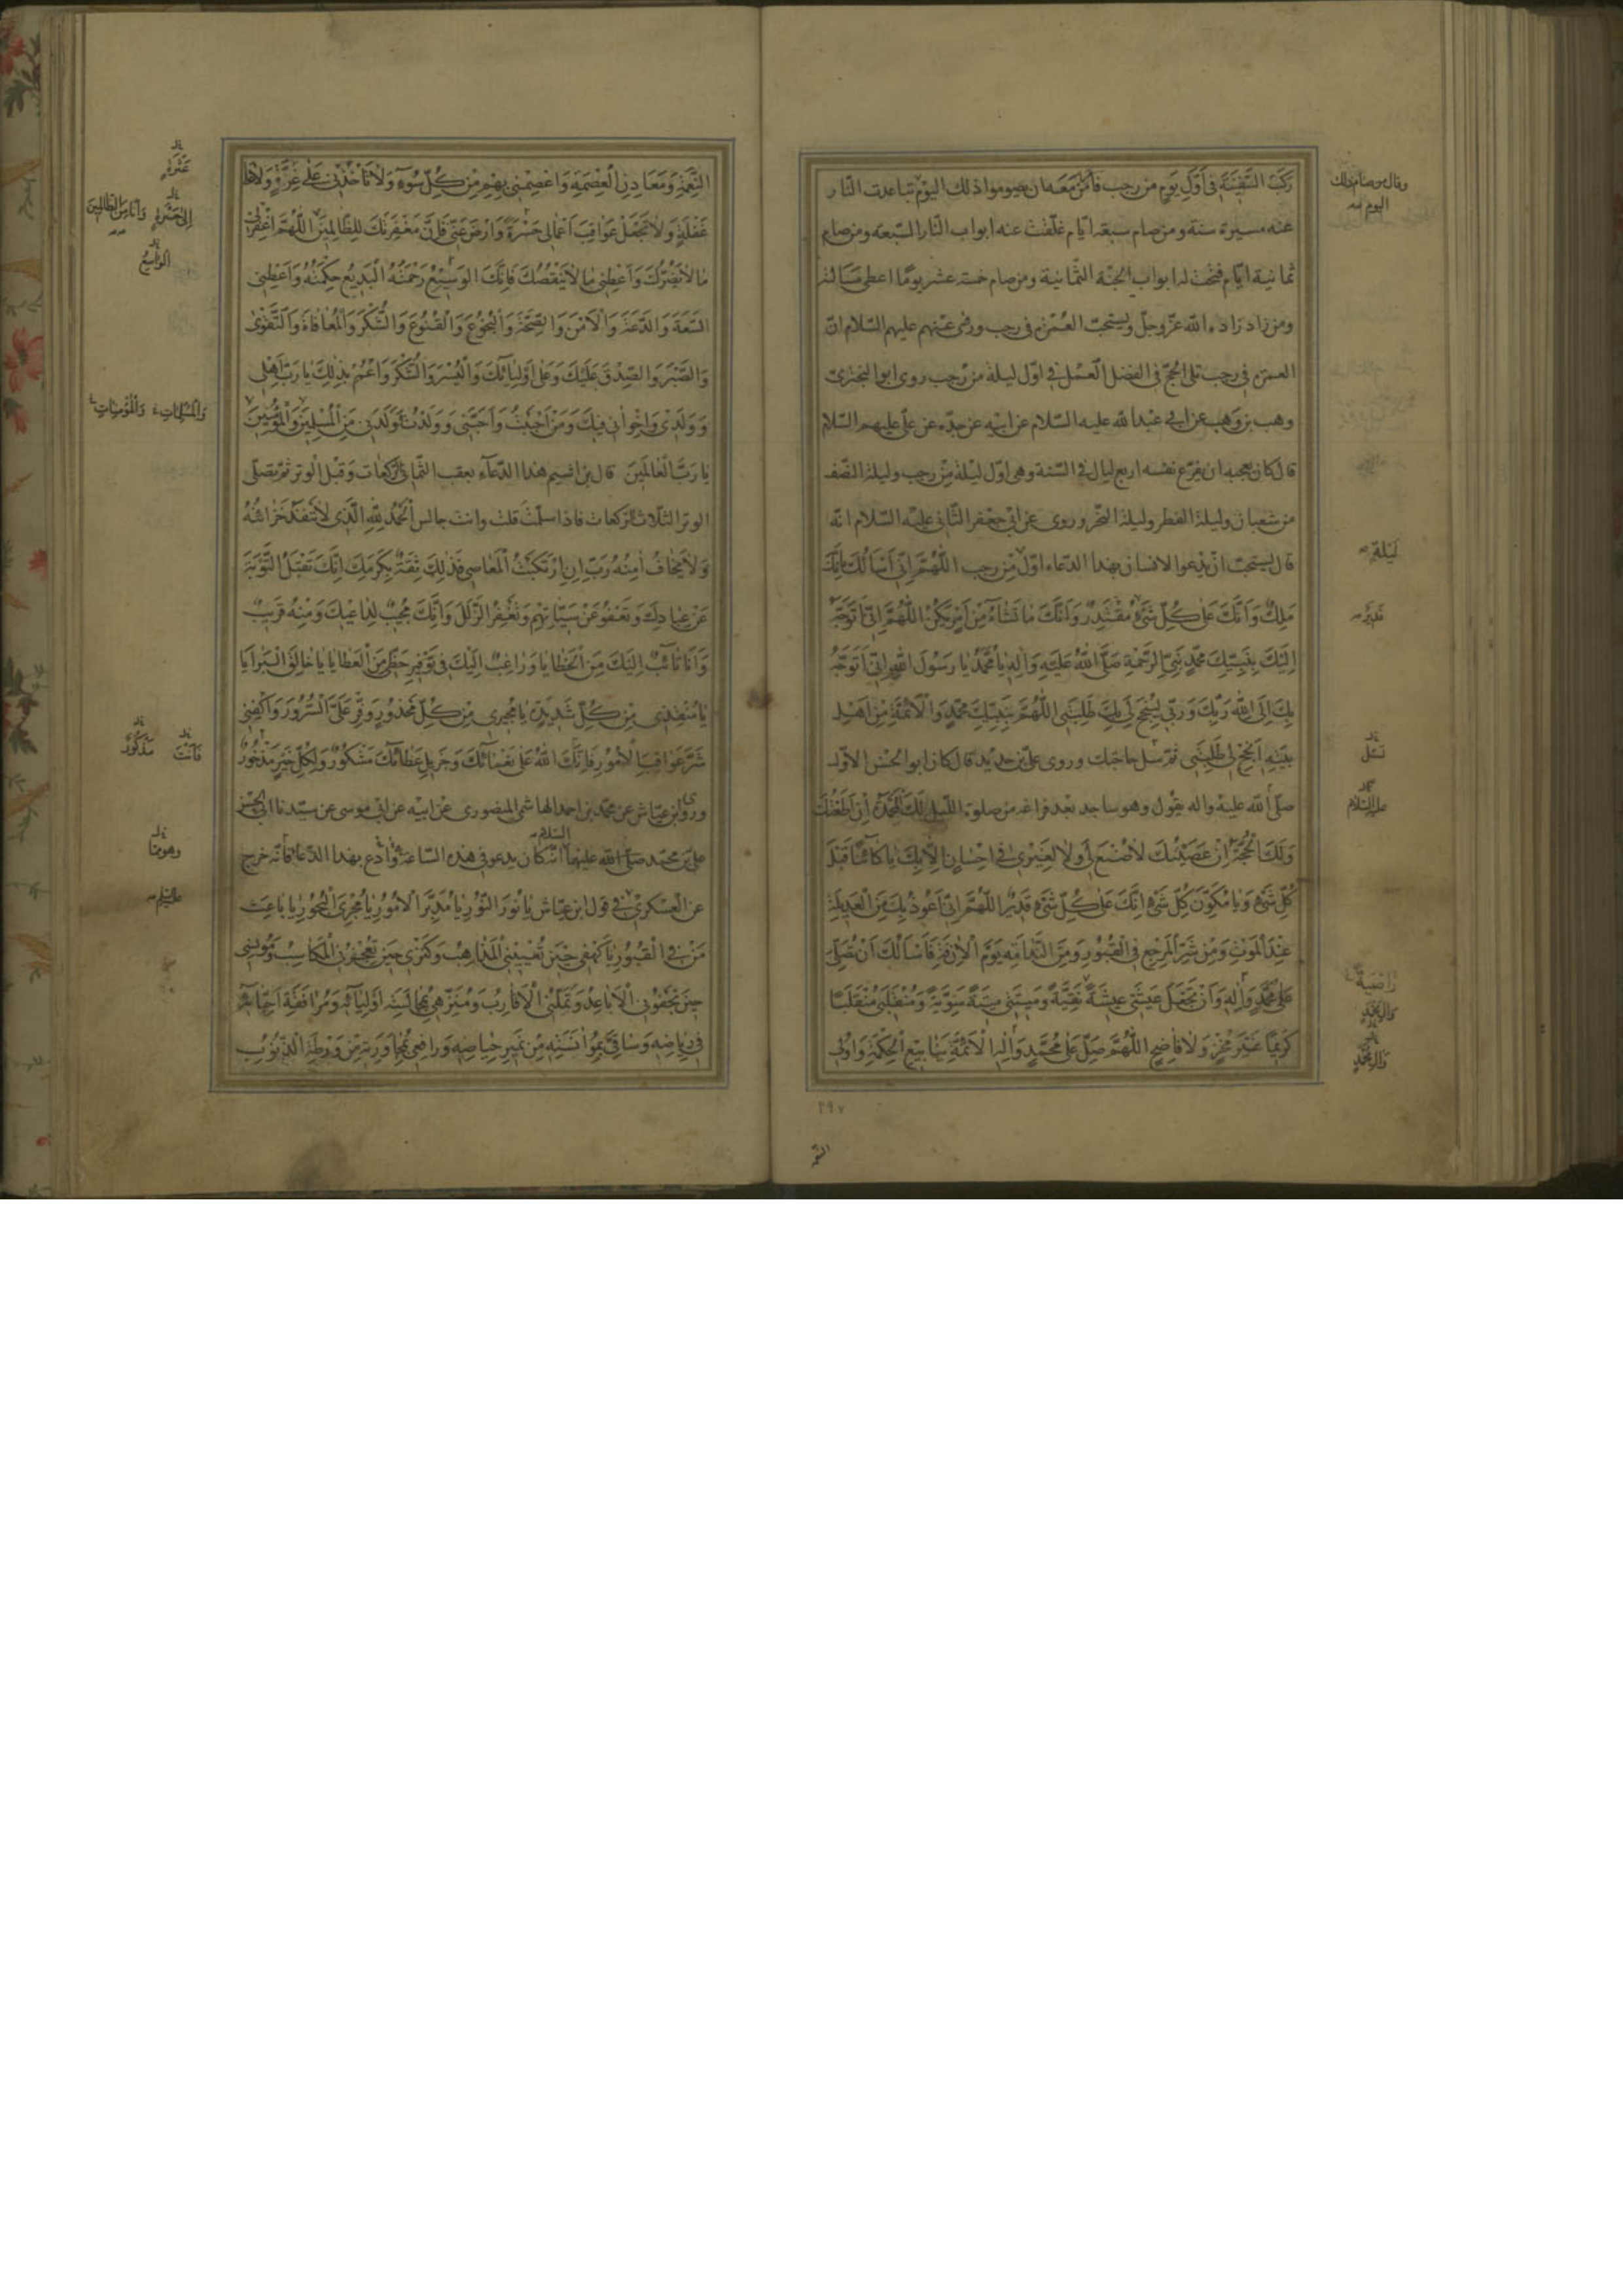 ركب السّفينة فى أوّل يوم من رجب فأمر من معه ان يصوموا ذلك اليوم تباعدت النّار
عنه مسيرة سنة ومن صام سبعة ايّام غلّقت عنه ابواب النّار السّبعة ومن صام
ثمانية ايّام فتحت له ابواب الجنّة الثّمانية ومن صام خمسة عشر يومًا اعطى مسألته
ومن زاد زاده اللّه عزّ وجلّ ويستحبّ العُمْرَة فى رجب وروى عنهم عليهم السّلام انّ
العمرة فى رجب تلى الحجّ فى الفضل العمل فى اوّل ليلة من رجب روى ابو البخترى
وهب بن وهب عن ابى عبد اللّه عليه السّلام عن ابيه عن جدّه عن علىّ عليهم السّلام
قال كان يعجبه ان يفرّغ نفسه اربع ليال فى السّنة وهى اوّل ليلة من رجب وليلة النّصف
من شعبان وليلة الفطر وليلة النّحر وروى عن ابى جعفر الثّانى عليه السّلام انّه
قال يستحبّ ان يدعوا الانسان بهذا الدّعاء اوّل من رجب اَللّٰهُمَّ اِنّى اَسْاَلُكَ بِاَنَّكَ
مَلِكٌ وَاَنَّكَ عَلٰى كُلِّ شَىْءٍ مُقْتَدِرٌ وَاَنَّكَ مٰا تَشٰاءُ مِنْ اَمْرٍ يَكُنْ اَللّٰهُمَّ اِنّى اَتَوَجَّهُ
اِلَيْكَ بِنَبِيِّكَ مُحَمَّدٍ نَبِىِّ الرَّحْمَةِ صَلَّى اللّٰهُ عَلَيْهِ وَاٰلِهِ يٰا مُحَمَّدُ يٰا رَسُولَ اللّٰهِ اِنّى اَتَوَجَّهُ
بِكَ اِلَى اللّٰهِ رَبِّكَ وَرَبّى لِيُنْجِحَ لى بِكَ طَلِبَتى اَللّٰهُمَّ بِنَبِيِّكَ مُحَمَّدٍ وَالْاَئِمَّةِ مِنْ اَهْلِ
بَيْتِهِ اَنْجِحْ لى طَلِبَتى ثمّ سل حاجتك وروى علىّ بن حديد قال كان ابو الحسن الاوّل
صلّى اللّه عليه واله يقول وهو ساجد بعد فراغه من صلوة اللّيل لَكَ الْمَحْمَدَةُ اِنْ اَطَعْتُكَ
وَلَكَ الْحُجَّةُ اِنْ عَصَيْتُكَ لاٰ صُنْعَ لى وَلاٰ لِغَيْرى فى اِحْسٰانٍ اِلاّٰ بِكَ يٰا كٰائِنًا قَبْلَ
كُلِّ شَىْءٍ وَيٰا مُكَوِّنَ كُلِّ شَىْءٍ اِنَّكَ عَلٰى كُلِّ شَىْءٍ قَديرٌ اَللّٰهُمَّ اِنّى اَعُوذُ بِكَ مِنَ الْعَديلَةِ
عِنْدَ الْمَوْتِ وَمِنْ شَرِّ الْمَرْجِعِ فِى الْقُبُورِ وَمِنَ النَّدٰامَةِ يَوْمَ الْاٰزِفَةِ فَاَسْاَلُكَ اَنْ تُصَلِّىَ
عَلٰى مُحَمَّدٍ وَاٰلِهِ وَاَنْ تَجْعَلَ عَيْشى عيشَةً نَقِيَّةً وَميتَتى ميتَةً سَوِيَّةً وَمُنْقَلَبى مُنْقَلَبًا
كَريمًا غَيْرَ مُخْزٍ وَلاٰ فٰاضِحٍ اَللّٰهُمَّ صَلِّ عَلٰى مُحَمَّدٍ وَاٰلِهِ الْاَئِمَّةِ يَنٰابيعِ الْحِكْمَةِ وَاُولِى
وقال من صام ذلك
اليوم
ليلة
قدير
تسئل
عليه السّلام
راضية
وال محمّد
وال محمّد
٢٩٧
النّعمة
النِّعْمَةِ وَمَعٰادِنِ الْعِصْمَةِ وَاعْصِمْنى بِهِمْ مِنْ كُلِّ سُوءٍ وَلاٰ تَأْخُذْنى عَلٰى غِرَّةٍ وَلاٰ عَلٰى
غَفْلَةٍ وَلاٰ تَجْعَلْ عَوٰاقِبَ اَعْمٰالى حَسْرَةً وَارْضَ عَنّى فَاِنَّ مَغْفِرَتَكَ لِلظّٰالِمينَ اَللّٰهُمَّ اغْفِرْ لى
مٰا لاٰ يَضُرُّكَ وَاَعْطِنى مٰا لاٰ يَنْقُصُكَ فَاِنَّكَ الوَسيعُ رَحْمَتُهُ الْبَديعُ حِكْمَتُهُ وَاَعْطِنِى
السَّعَةَ وَالدَّعَةَ وَالْاَمْنَ وَالصِّحَّةَ وَالْبُخُوعَ وَالْقُنُوعَ وَالشُّكْرَ وَالْمُعٰافٰاةَ وَالتَّقْوٰى
وَالصَّبْرَ وَالصِّدْقَ عَلَيْكَ وَعَلٰى اَوْلِيٰائِكَ وَالْيُسْرَ وَالشُّكْرَ وَاعْمُمْ بِذٰلِكَ يٰا رَبِّ اَهْلى
وَوَلَدى وَاِخْوٰانى فيكَ وَمَنْ اَحْبَبْتُ وَاَحَبَّنى وَوَلَدْتُ وَوَلَدَنى مِنَ الْمُسْلِمينَ وَالْمُؤْمِنينَ
يٰا رَبَّ الْعٰالَمينَ قال بن اشيم هذا الدّعاء يعقب الثّمانى ركعات وقبل الوتر ثمّ تصلّى
الوتر الثّلاث ركعات فاذا سلّمت قلت وانت جالس اَلْحَمْدُ لِلّٰهِ الَّذى لاٰ تَنْفَدُ خَزٰائِنُهُ
وَلاٰ يَخٰافُ اٰمِنُهُ رَبِّ اِنِ ارْتَكَبْتُ الْمَعٰاصِىَ فَذٰلِكَ ثِقَةٌ بِكَرَمِكَ اِنَّكَ تَقْبَلُ التَّوْبَةَ
عَنْ عِبٰادِكَ وَتَعْفُو عَنْ سَيِّئٰاتِهِمْ وَتَغْفِرُ الزَّلَلَ وَاَنَّكَ مُجيبٌ لِدٰاعيكَ وَمِنْهُ قَريبٌ
وَاَنَا تٰائِبٌ اِلَيْكَ مِنَ الْخَطٰايٰا وَرٰاغِبٌ اِلَيْكَ فى تَوْفيرِ حَظّى مِنَ الْعَطٰايٰا يٰا خٰالِقَ الْبَرٰايٰا
يٰا مُنْقِذى مِنْ كُلِّ شَديدَةٍ يٰا مُجيرى مِنْ كُلِّ مَحْذُورٍ وَفِّرْ عَلَىَّ السُّرُورَ وَاكْفِنى
شَرَّ عَوٰاقِبِ الْاُمُورِ فَاِنَّكَ اللّٰهُ عَلٰى نَعْمٰائِكَ وَجَزيلِ عَطٰائِكَ مَشْكُورٌ وَلِكُلِّ خَيْرٍ مَذْخُورٌ
وروى ابن عيّاش عن محمّد بن احمد الهاشمى المنصورى عن ابيه عن ابى موسى عن سيّدنا ابى الحسن
علىّ بن محمّد صلّى اللّه عليهما السّلام انّه كان يدعو فى هذه السّاعة وادع بهذا الدّعا فانّه خرج
عن العسكرى فى قول ابن عيّاش يٰا نُورَ النُّورِ يٰا مُدَبِّرَ الْاُمُورِ يٰا مُجْرِىَ الْبُحُورِ يٰا بٰاعِثَ
مَنْ فِى الْقُبُورِ يٰا كَهْفى حينَ تُعْيينِى الْمَذٰاهِبُ وَكَنْزى حينَ تُعْجِزُنِى الْمَكٰاسِبُ وَمُونِسى
حينَ تَجْفُونِى الْاَبٰاعِدُ وَتَمَلُّنِى الْاَقٰارِبُ وَمُنَزِّهى بِمُجٰالَسَةِ اَوْلِيٰائِهِ وَمُرٰافَقَةِ اَحِبّٰائِهِ
فى رِيٰاضِهِ وَسٰاقِىَّ بِمُؤٰانَسَتِهِ مِنْ نَميرِ حِيٰاضِهِ وَرٰافِعى بِمُجٰاوَرَتِهِ مِنْ وَرْطَةِ الذُّنُوبِ
عَثْرَةٍ
اِلٰى حَسْرَةٍ وَاَنَا مِنَ الظّٰالِمينَ
الوٰاسِعُ
وَالْمُسْلِمٰاتِ وَالْمُؤْمِنٰاتِ
فَاَنْتَ مَذْكُورٌ
وهو هنا
عليه السّلم